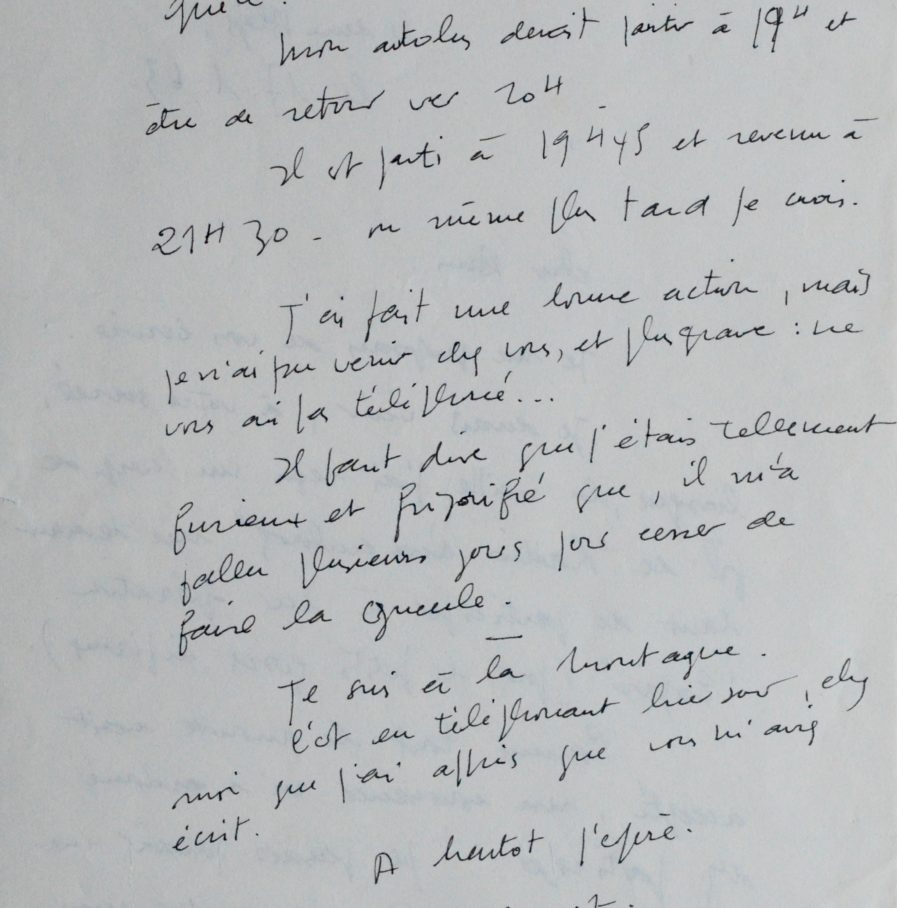 mon autobus devait partir à 19H et
être de retour ver 20H
Il est parti à 19H45 et revenu à
21H30 - ou même plus tard je crois.
J'ai fait une bonne action, mais
je n'ai pu venir chez vous, et plus grave : ne
vous ai pas téléphoné...
Il faut dire que j'étais tellement
furieux et frigorifié que, il m'a
fallu plusieurs jours pour cesser de
faire la gueule.
Je suis à la montagne.
C'est en téléphonant hier soir, chez
moi que j'ai appris que vous m'aviez
écrit.
A bientot j'espère.